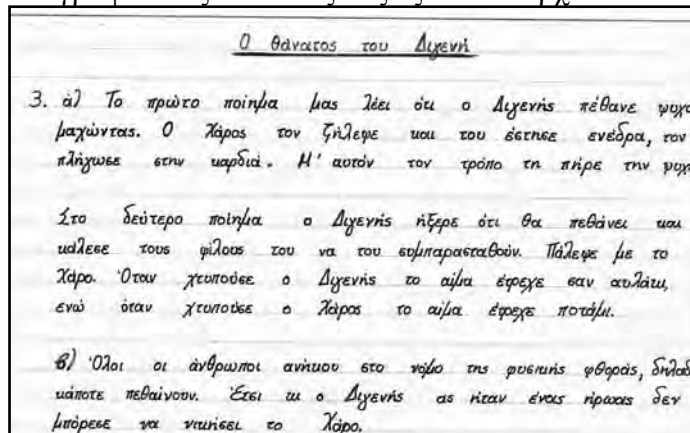 Ο θάνατος του Διγενή
3. α) Το πρώτο ποίημα μας λέει ότι ο Διγενής πέθανε ψυχο
μαχώντας. Ο Χάρος τον ζήλεψε και του έστησε ενέδρα, τον
πλήγωσε στην καρδιά. Μ' αυτόν τον τρόπο τη πήρε την ψυχ
Στο δεύτερο ποίημα ο Διγενής ήξερε ότι θα πεθάνει και
κάλεσε τους φίλους του να του συμπαρασταθούν. Πάλεψε με το
Χάρο. Όταν χτυπούσε ο Διγενής το αίμα έτρεχε σαν αυλάκι,
ενώ όταν χτυπούσε ο Χάρος το αίμα έτρεχε ποτάμι.
β) Όλοι οι άνθρωποι ανήκου στο νόμο της φυσικής φθοράς, δηλαδ
κάποτε πεθαίνουν. Έτσι κι ο Διγενής ας ήταν ένας ήρωας δεν
μπόρεσε να νικήσει το Χάρο.